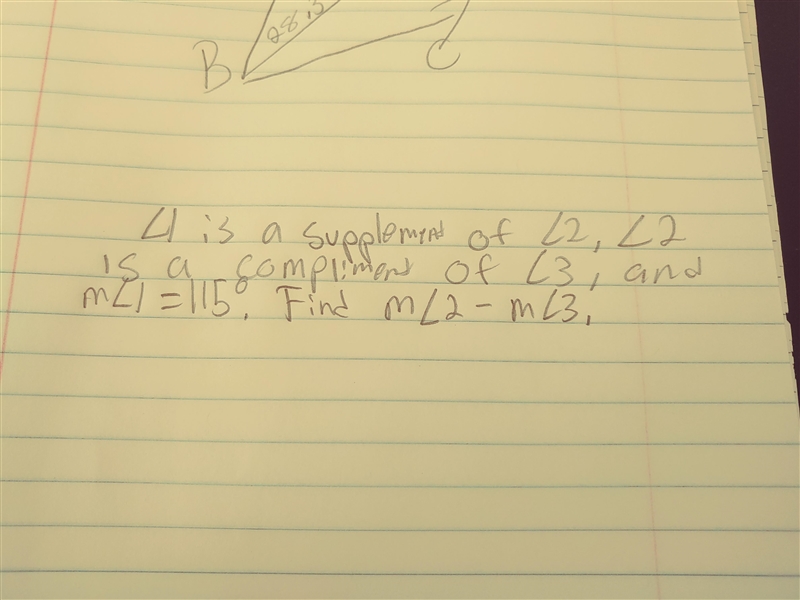 28.3
B
C
∠1 is a supplement of ∠2, ∠2
is a compliment of ∠3, and
m∠1 = 115°. Find m∠2 - m∠3.